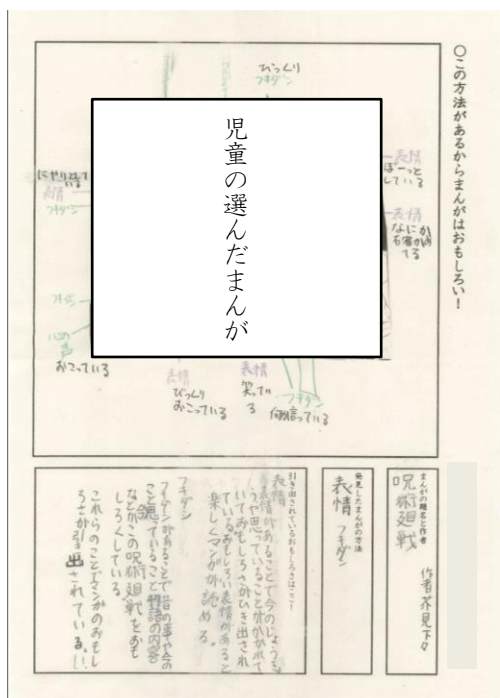 ○この方法があるからまんがはおもしろい！
びっくり
フキダシ
表情
ぼーっと
している
表情
なにか
てる
児童の選んだまんが
にやり
表情
フキダシ
フキダシ
心の
声
おこっている
表情
びっくり
おこっている
表情
笑って
る
フキダシ
何言っている
まんがの題名と作者
呪術廻戦
作者芥見下々
発見したまんがの方法
表情 フキダシ
引き出されているおもしろさはここ！
表情
表情があることで今のじょうきょ
うや思っていることがかかれて
いておもしろさがひき出され
ているおもしろい表情があると
楽しくマンガが読
める。
フキダシ
フキダシがあることで昔の事や今の
こと思っていること物語の内容
などがこの呪術廻戦をおも
しろくしている。
これらのことでマンガのおもし
ろさが引き出されている。